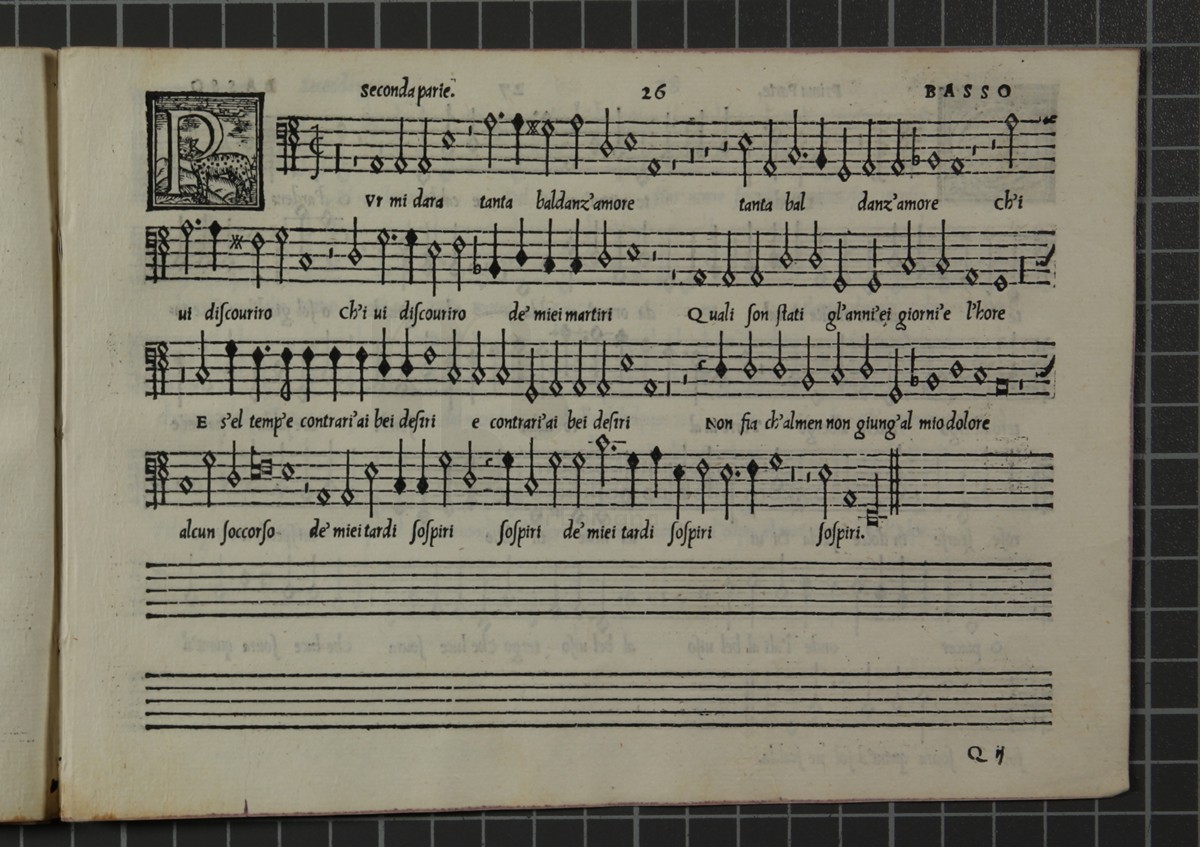 Seconda parie. 26 BASSO
PVr mi dara tanta baldanz'amore tanta bal danz'amore ch'i
ui diſcouriro Ch'i ui diſcouriro de' miei martiri Quali ſon ſtati gl'anni'ei giorni'e l'hore
E s'el temp'e contrari'ai bei deſiri e contrari'ai bei deſiri Non fia ch'almen non giung'al mio dolore
alcun ſoccorſo de' miei tardi ſoſpiri ſoſpiri de' miei tardi ſoſpiri ſoſpiri.